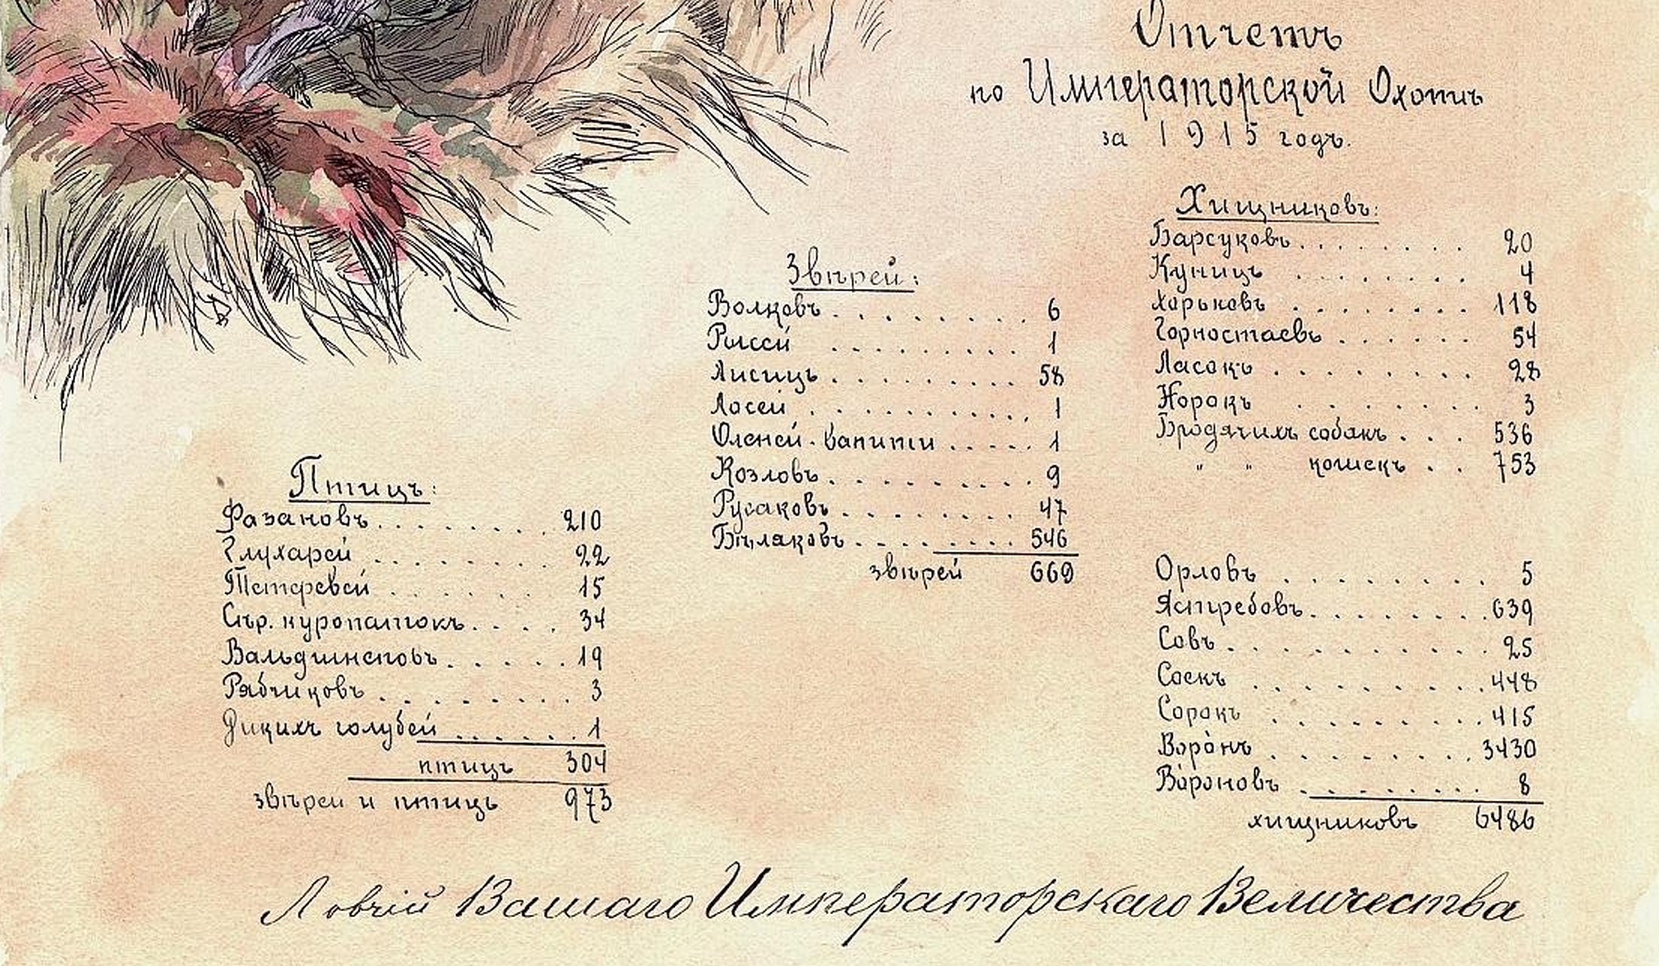 Отчетъ
по Императорской Охотѣ
за 1915 годъ.
Птицъ:
Фазановъ 210
Глухарей 22
Тетеревей 15
Сѣр. куропатокъ 34
Вальдшнеповъ 19
Рябчиковъ 3
Дикихъ голубей 1
птицъ 304
звѣрей и птицъ 973
Звѣрей:
Волковъ 6
Рысей 1
Лисицъ 58
Лосей 1
Оленей-вапити 1
Козловъ 9
Русаковъ 47
Бѣляковъ 546
звѣрей 669
Хищниковъ:
Барсуковъ 20
Куницъ 4
Хорьковъ 118
Горностаевъ 54
Ласокъ 28
Норокъ 3
Бродячихъ собакъ 536
" " кошекъ 753
Орловъ 5
Ястребовъ 639
Совъ 25
Соекъ 448
Сорокъ 415
Воронъ 3430
Вороновъ 8
хищниковъ 6486
Ловчій Вашего Императорскаго Величества